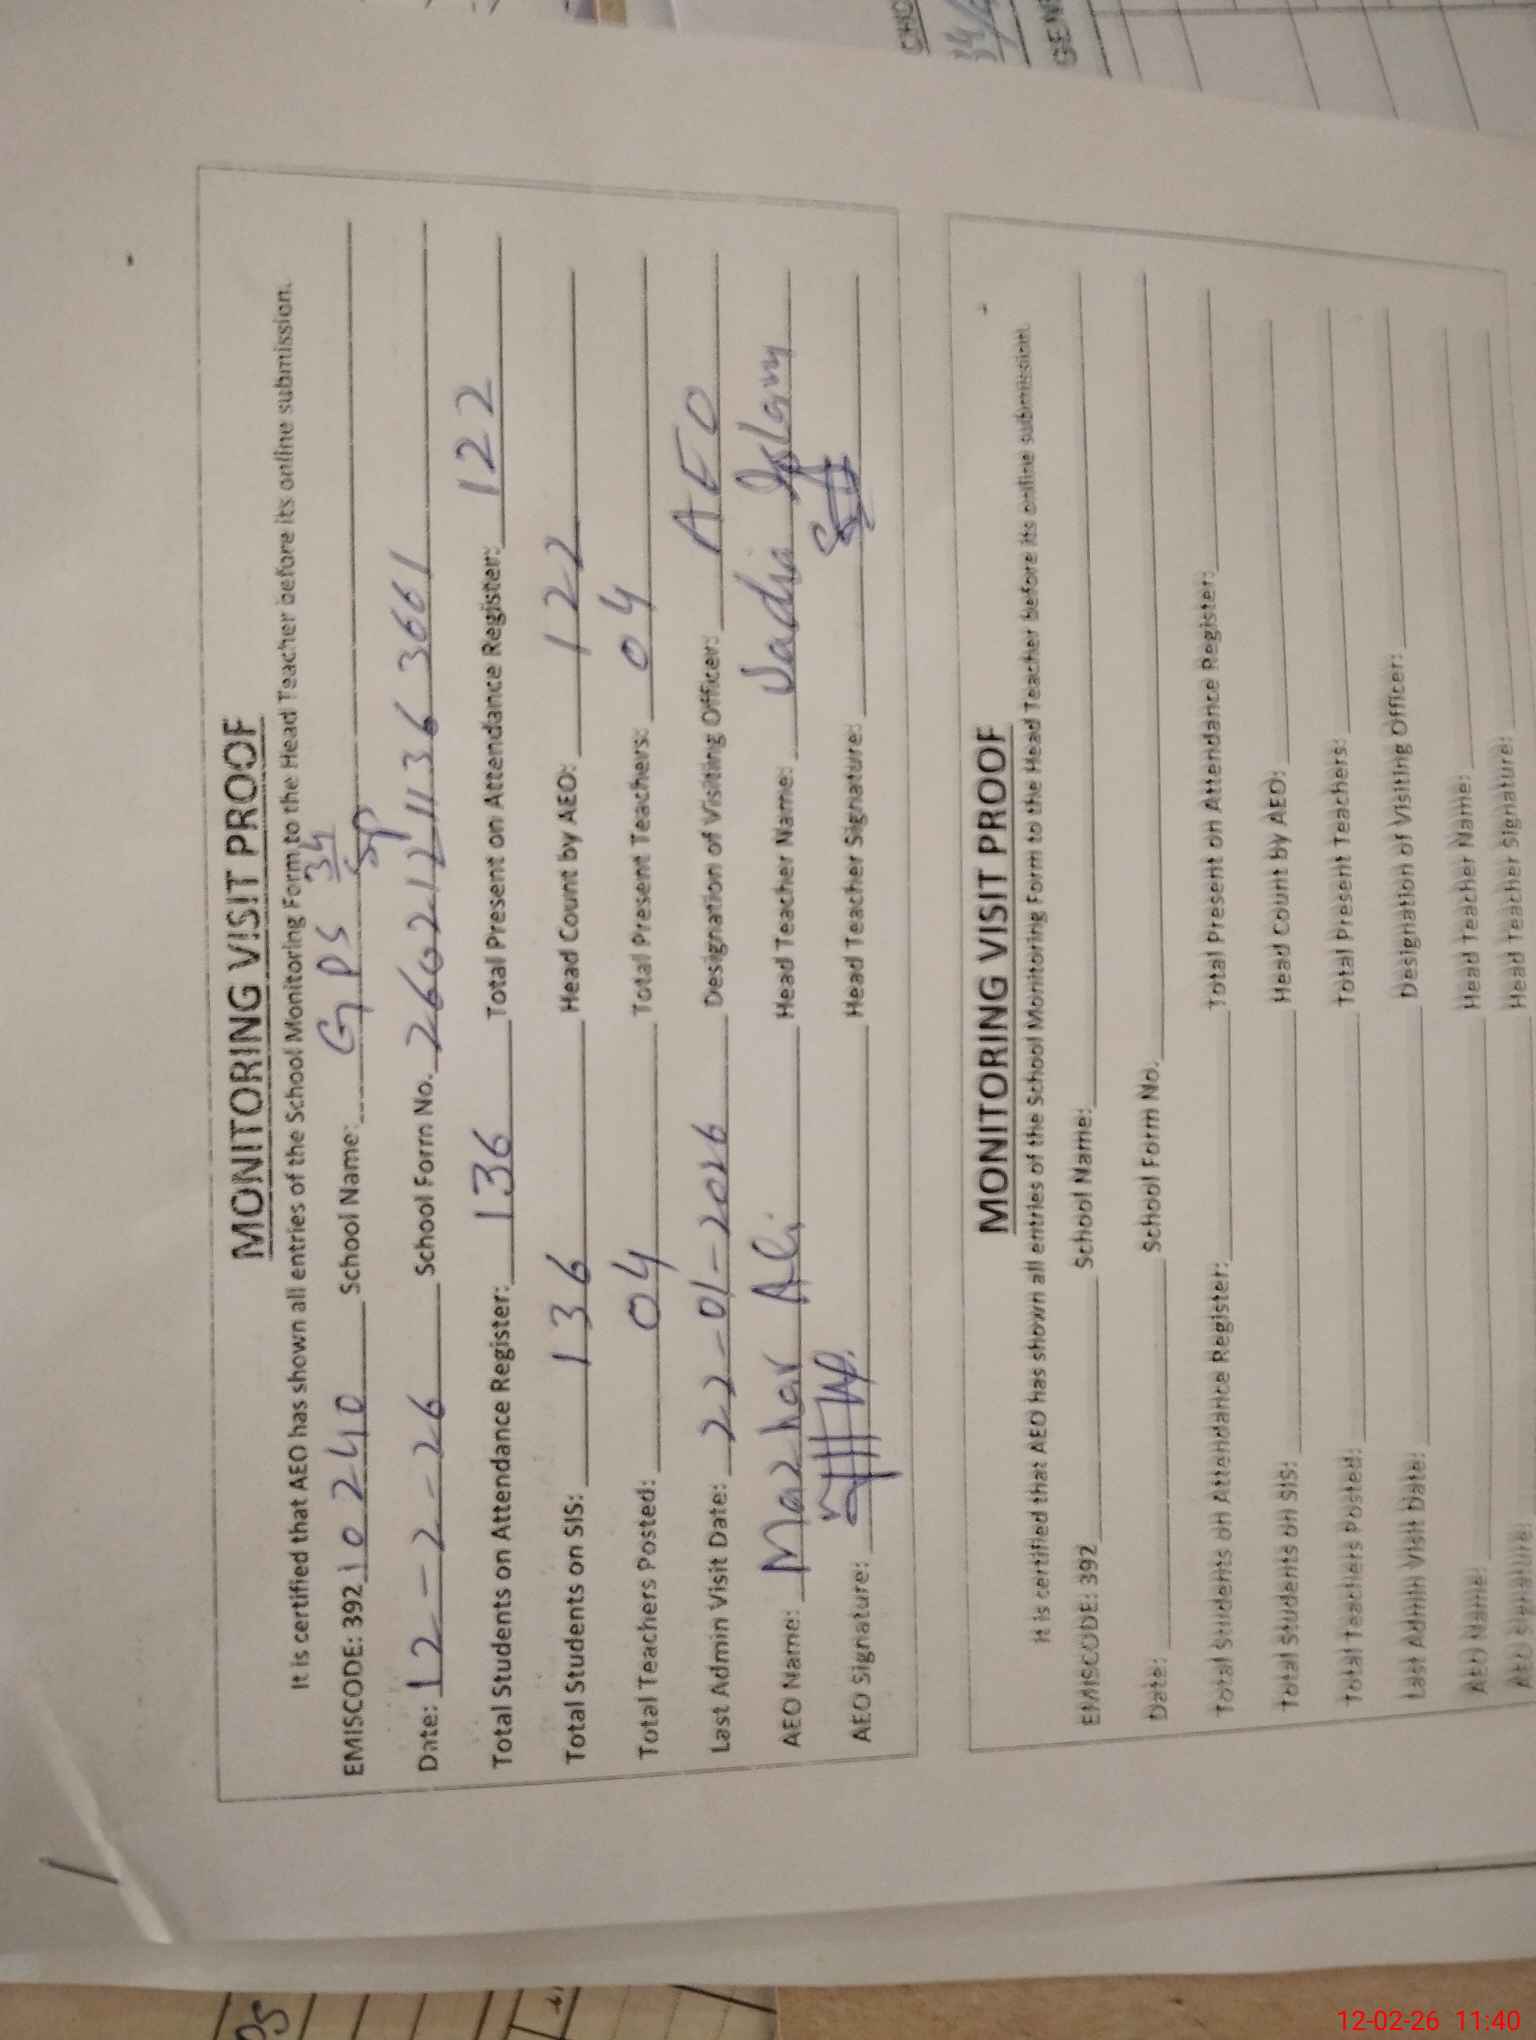 MONITORING VISIT PROOF
It is certified that AEO has shown all entries of the School Monitoring Form to the Head Teacher before its online submission.
EMISCODE: 392 10240 School Name: GPS 34/SP
Date: 12-2-26 School Form No. 2602121136 3661
Total Students on Attendance Register: 136 Total Present on Attendance Register: 122
Total Students on SIS: 136 Head Count by AEO: 122
Total Teachers Posted: 04 Total Present Teachers: 04
Last Admin Visit Date: 22-01-2026 Designation of Visiting Officer: AEO
AEO Name: Mazhar Ali Head Teacher Name: Sadia Islam
AEO Signature: Head Teacher Signature:
MONITORING VISIT PROOF
It is certified that AEO has shown all entries of the School Monitoring Form to the Head Teacher before its online submission.
EMISCODE: 392 School Name:
Date: School Form No.
Total Students on Attendance Register: Total Present on Attendance Register:
Total Students on SIS: Head Count by AEO:
Total Teachers Posted: Total Present Teachers:
Last Admin Visit Date: Designation of Visiting Officer:
AEO Name: Head Teacher Name:
AEO Signature: Head Teacher Signature:
12-02-26 11:40